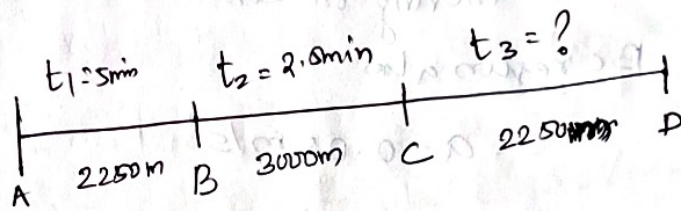 t1=5min t2=2.5min t3=?
A 2250m B 3000m C 2250m D